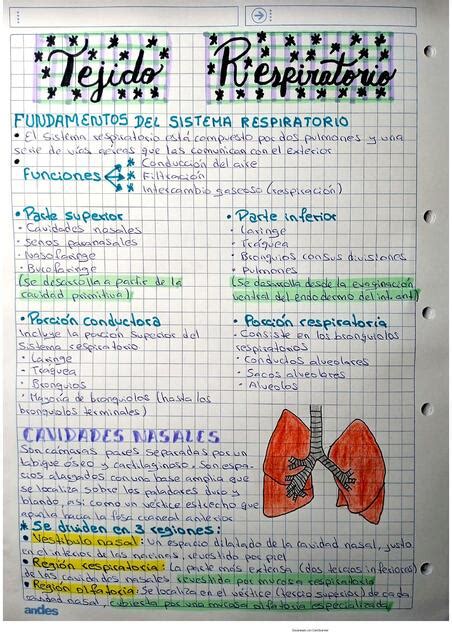 Tejido Respiratorio
FUNDAMENTOS DEL SISTEMA RESPIRATORIO
• El sistema respiratorio está compuesto por dos pulmones y una
serie de vías aéreas que las comunican con el exterior
• Funciones
* Conducción del aire
* Filtración
* Intercambio gaseoso (respiración)
• Parte superior
· Cavidades nasales
· Senos paranasales
· Nasofaringe
· Bucofaringe
(Se desarrolla a partir de la
cavidad primitiva)
• Parte inferior
· Laringe
· Tráquea
· Bronquios con sus divisiones
· Pulmones
(Se desarrolla desde la evaginación
ventral del endodermo del int. ant)
• Porción conductora
Incluye la porción superior del
Sistema respiratorio
· Laringe
· Traquea
· Bronquios
· Mayoría de bronquiolos (hasta los
bronquiolos terminales)
• Porción respiratoria
· Consiste en los bronquiolos
respiratorios
· Conductos alveolares
· Sacos alveolares
· Alveolos
CAVIDADES NASALES
Son cámaras pares separadas por un
tabique óseo y cartilaginoso. Son espa-
cios alargados con una base amplia que
se localiza sobre los paladares duro y
blando, así como un vértice estrecho que
apunta hacia la fosa craneal anterior
* Se dividen en 3 regiones:
• Vestíbulo nasal: un espacio dilatado de la cavidad nasal, justo
en el interior de las narinas, revestido por piel
• Región respiratoria: La parte más extensa (dos tercios inferiores)
de las cavidades nasales, revestida por mucosa respiratoria
• Región olfatoria: Se localiza en el vértice (tercio superior) de cada
cavidad nasal, cubierta por una mucosa olfatoria especializada
andes
Escaneado con CamScanner